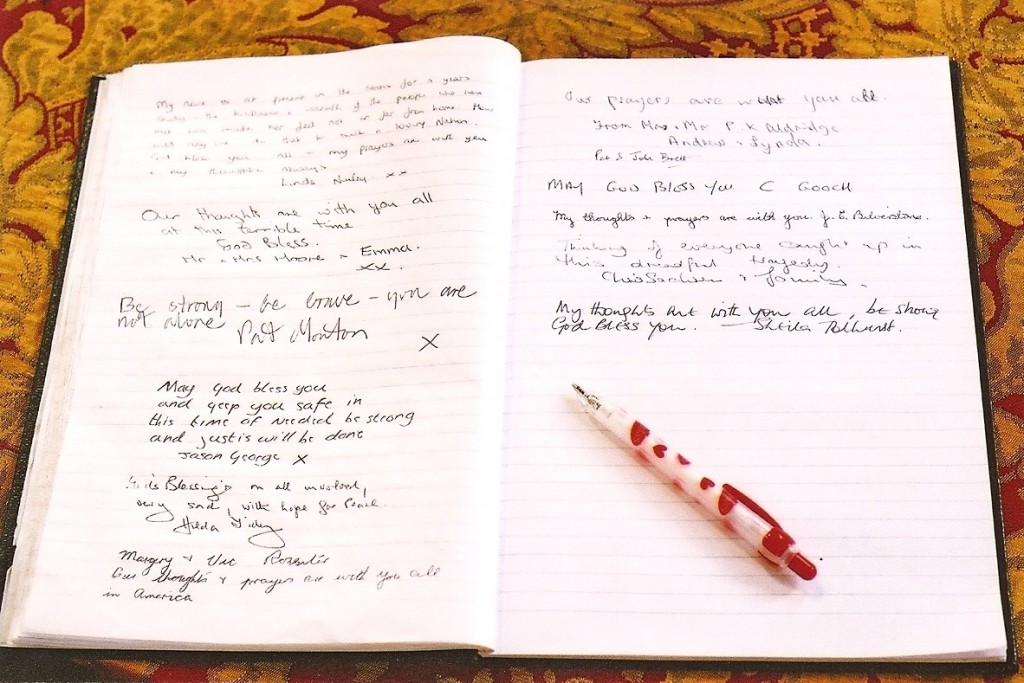 My niece is at present in the States for a years
study - the kindness + warmth of the people who have
met her makes her feel not so far from home.
God bless you all - my prayers are with you
+ my thoughts always
Linda xx
Our thoughts are with you all
at this terrible time
God Bless.
Mr + Mrs Moore + Emma.
xx.
Be strong - be brave - you are
not alone Pat Monton
X
May God bless you
and geep you safe in
this time of needed be strong
and justis will be done
Jason George X
God's Blessings on all involved,
very sad, with hope for Peace.
Hilda
Margery + Vic
Our thoughts + prayers are with you all
in America
Our prayers are with you all.
From Mrs + Mr P. K Aldridge
Andrew + Lynda.
Pat & John Brett
MAY GOD BLESS YOU C GOOCH
My thoughts + prayers are with you. J. E.
Thinking of everyone caught up in
this dreadful tragedy.
+ family.
My thoughts are with you all, be strong
God Bless you. - Sheila Tolhurst.